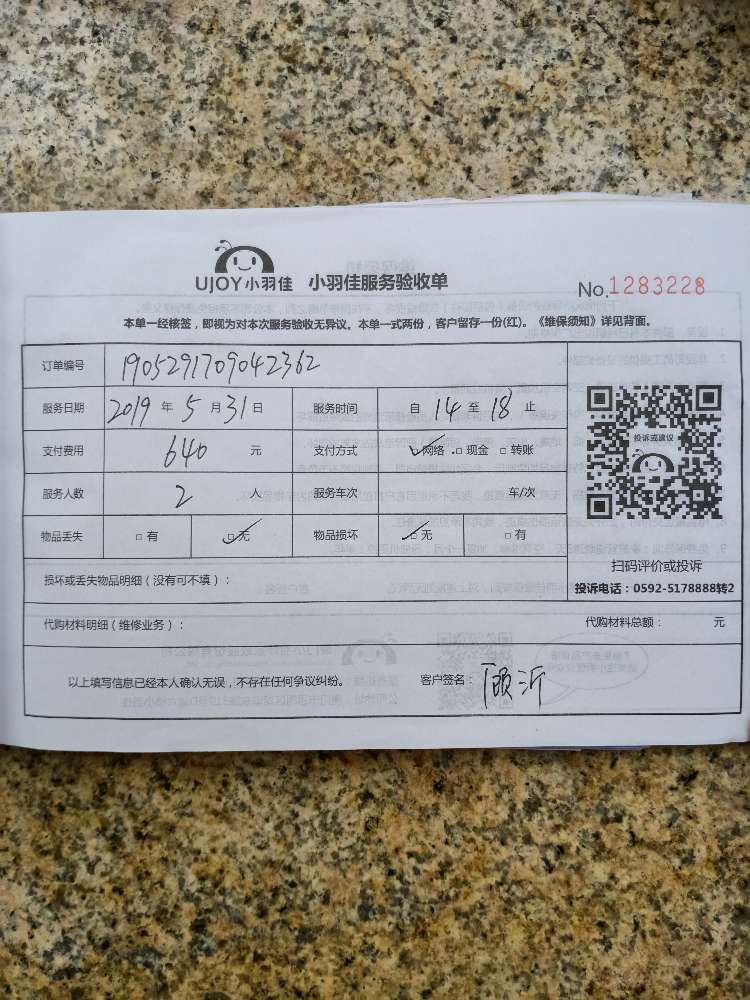 UJOY小羽佳 小羽佳服务验收单 No.1283228
本单一经核签，即视为对本次服务验收无异议。本单一式两份，客户留存一份(红)。《维保须知》详见背面。
订单编号 1905291709042362
服务日期 2019 年 5 月 31 日 服务时间 自 14 至 18 止
投诉或建议
支付费用 640 元 支付方式 ☑网络 □现金 □转账
服务人数 2 人 服务车次 车/次
物品丢失 □有 ☑无 物品损坏 ☑无 □有
扫码评价或投诉
损坏或丢失物品明细（没有可不填）： 投诉电话：0592-5178888转2
代购材料明细（维修业务）： 代购材料总额： 元
以上填写信息已经本人确认无误，不存在任何争议纠纷。 客户签名： 顾沂